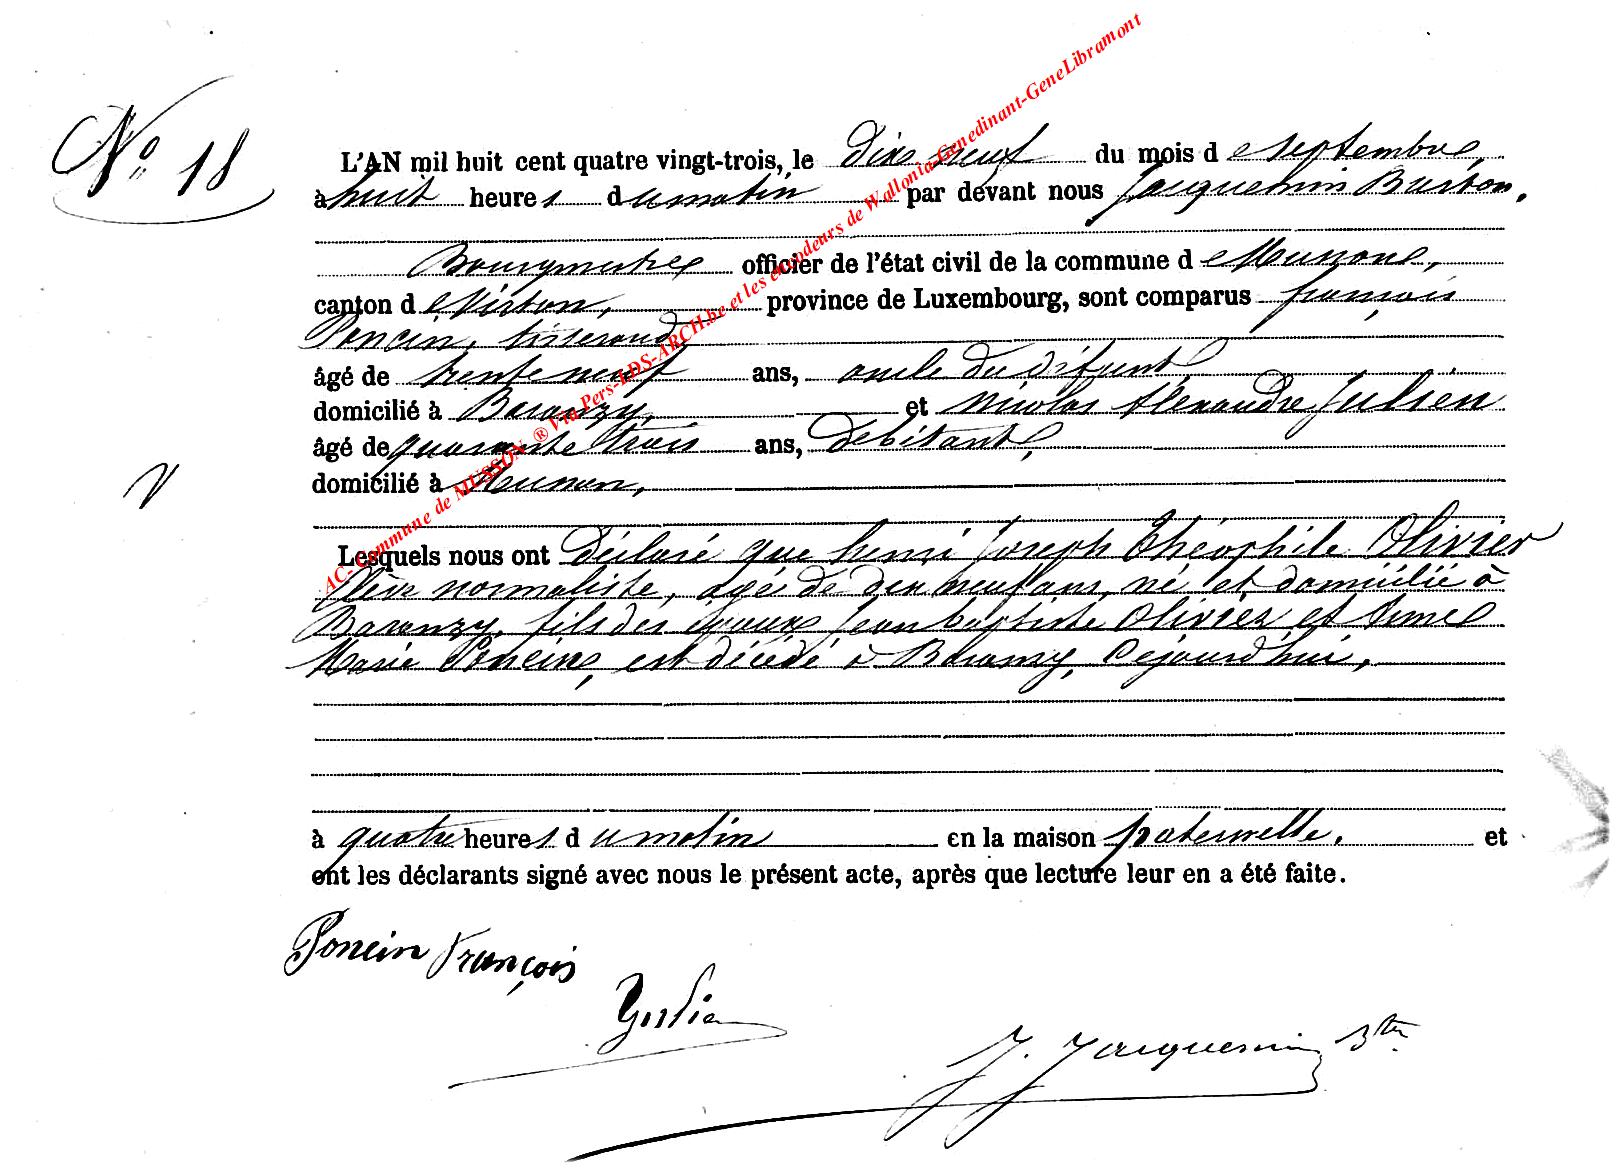 N° 18
L'AN mil huit cent quatre vingt-trois, le dix neuf du mois de septembre,
à huit heures du matin par devant nous Jacquemin Burton,
Bourgmestre officier de l'état civil de la commune de Musson,
canton de Virton, province de Luxembourg, sont comparus françois
Poncin, tisserand
âgé de trente neuf ans, oncle du défunt,
domicilié à Baranzy, et Nicolas Alexandre Julien
âgé de quarante trois ans, débitant,
domicilié à Musson,
V
Lesquels nous ont déclaré que henri Joseph Théophile Olivier
Elève normaliste, agé de dix neuf ans, né et domicilié à
Baranzy, fils des époux Jean baptiste Olivier et Anne
Marie Poncin, est décédé à Baranzy, Cejourd'hui,
à quatre heures du matin en la maison paternelle. et
ont les déclarants signé avec nous le présent acte, après que lecture leur en a été faite.
Poncin François
Julien
J. Jacquemin Btn
AC- Commune de MUSSON ® Via Pers-LDS-ARCH.be et les encodeurs de Wallonia-Genedinant-GeneLibramont